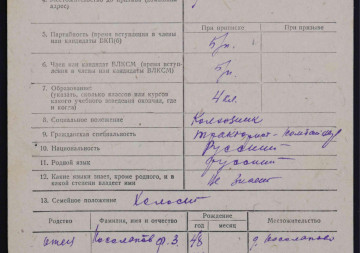 адрес)
При приписке При призыве
5. Партийность (время вступления в члены
или кандидаты ВКП(б)
б/п
6. Член или кандидат ВЛКСМ (время всту-
пления в члены или кандидаты ВЛКСМ)
б/п
7. Образование:
(указать, сколько классов или курсов
какого учебного заведения окончил, где
и когда)
4 кл.
8. Социальное положение Колхозник
9. Гражданская специальность тракторист-комбайнер
10. Национальность Русский
11. Родной язык русский
12. Какие языки знает, кроме родного, и в
какой степени владеет ими
не знает
13. Семейное положение Холост
Родство Фамилия, имя и отчество Рождение Местожительство
год месяц
отец Косолапов Ф. З. 48 д. Косолапово